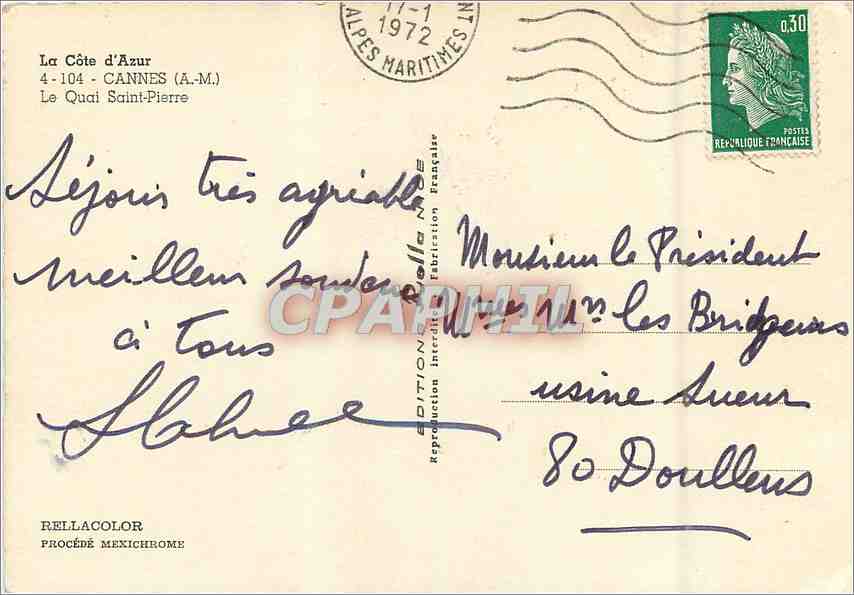 La Côte d'Azur
4-104 - CANNES (A.-M.)
Le Quai Saint-Pierre
17-1
1972
ALPES MARITIMES
0,30
POSTES
REPUBLIQUE FRANÇAISE
Séjour très agréable
meilleur souvenir
à tous
EDITIONS Rella NICE
Reproduction interdite Fabrication Française
CPAPHIL
Monsieur le Président
Mmes Mrs les Bridgeurs
usine Sueur
80 Doullens
RELLACOLOR
PROCÉDÉ MEXICHROME